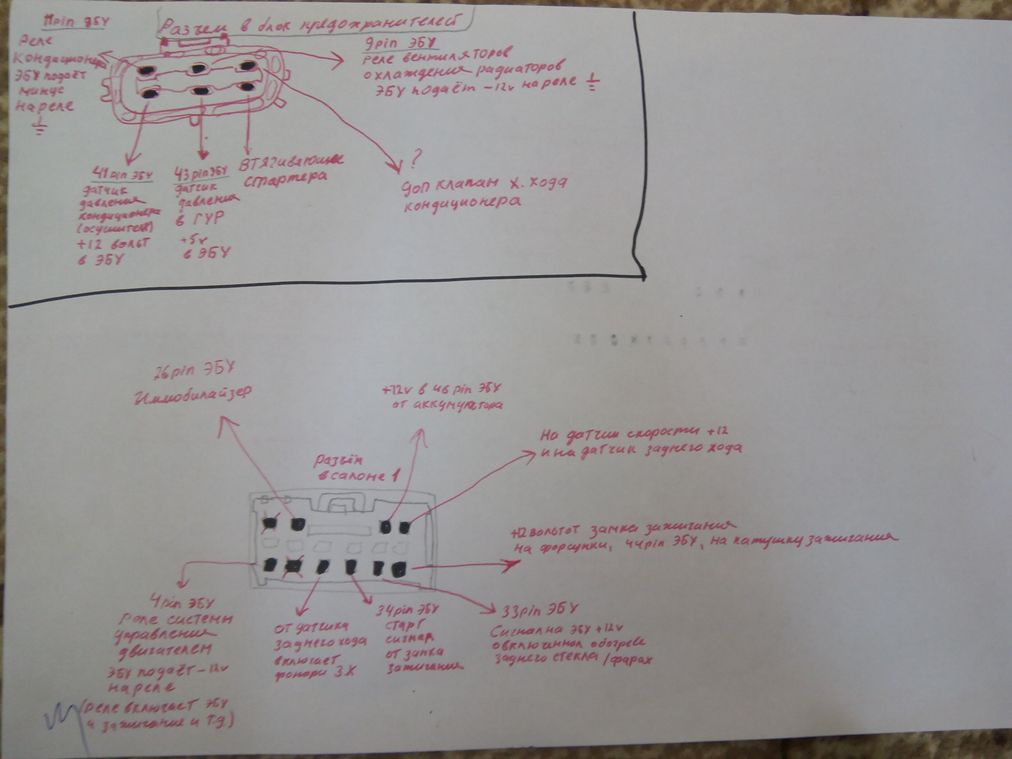 11pin ЭБУ
Реле
Кондиционера
ЭБУ подаёт
минус
на реле
Разъем в блок предохранителей
9pin ЭБУ
реле вентиляторов
охлаждения радиаторов
ЭБУ подаёт -12v на реле
41pin ЭБУ
датчик
давления
кондиционера
(осушителя)
+12 вольт
в ЭБУ
43pin ЭБУ
датчик
давления
в ГУР
+5v
в ЭБУ
Втягивающее
стартера
?
доп клапан х.хода
кондиционера
26pin ЭБУ
Иммобилайзер
+12v в 46pin ЭБУ
от аккумулятора
На датчик скорости +12
и на датчик заднего хода
Разъём
в салоне 1
+12 вольт от замка зажигания
на форсунки, 44pin ЭБУ, на катушку зажигания
4pin ЭБУ
Реле системы
управления
двигателем
ЭБУ подаёт -12v
на реле
(реле включает ЭБУ
и зажигание и т.д)
от датчика
заднего хода
включает
фонари З.Х
34pin ЭБУ
старт
сигнал
от замка
зажигания
33pin ЭБУ
Сигнал на ЭБУ +12v
о включином обогреве
заднего стекла/фарах